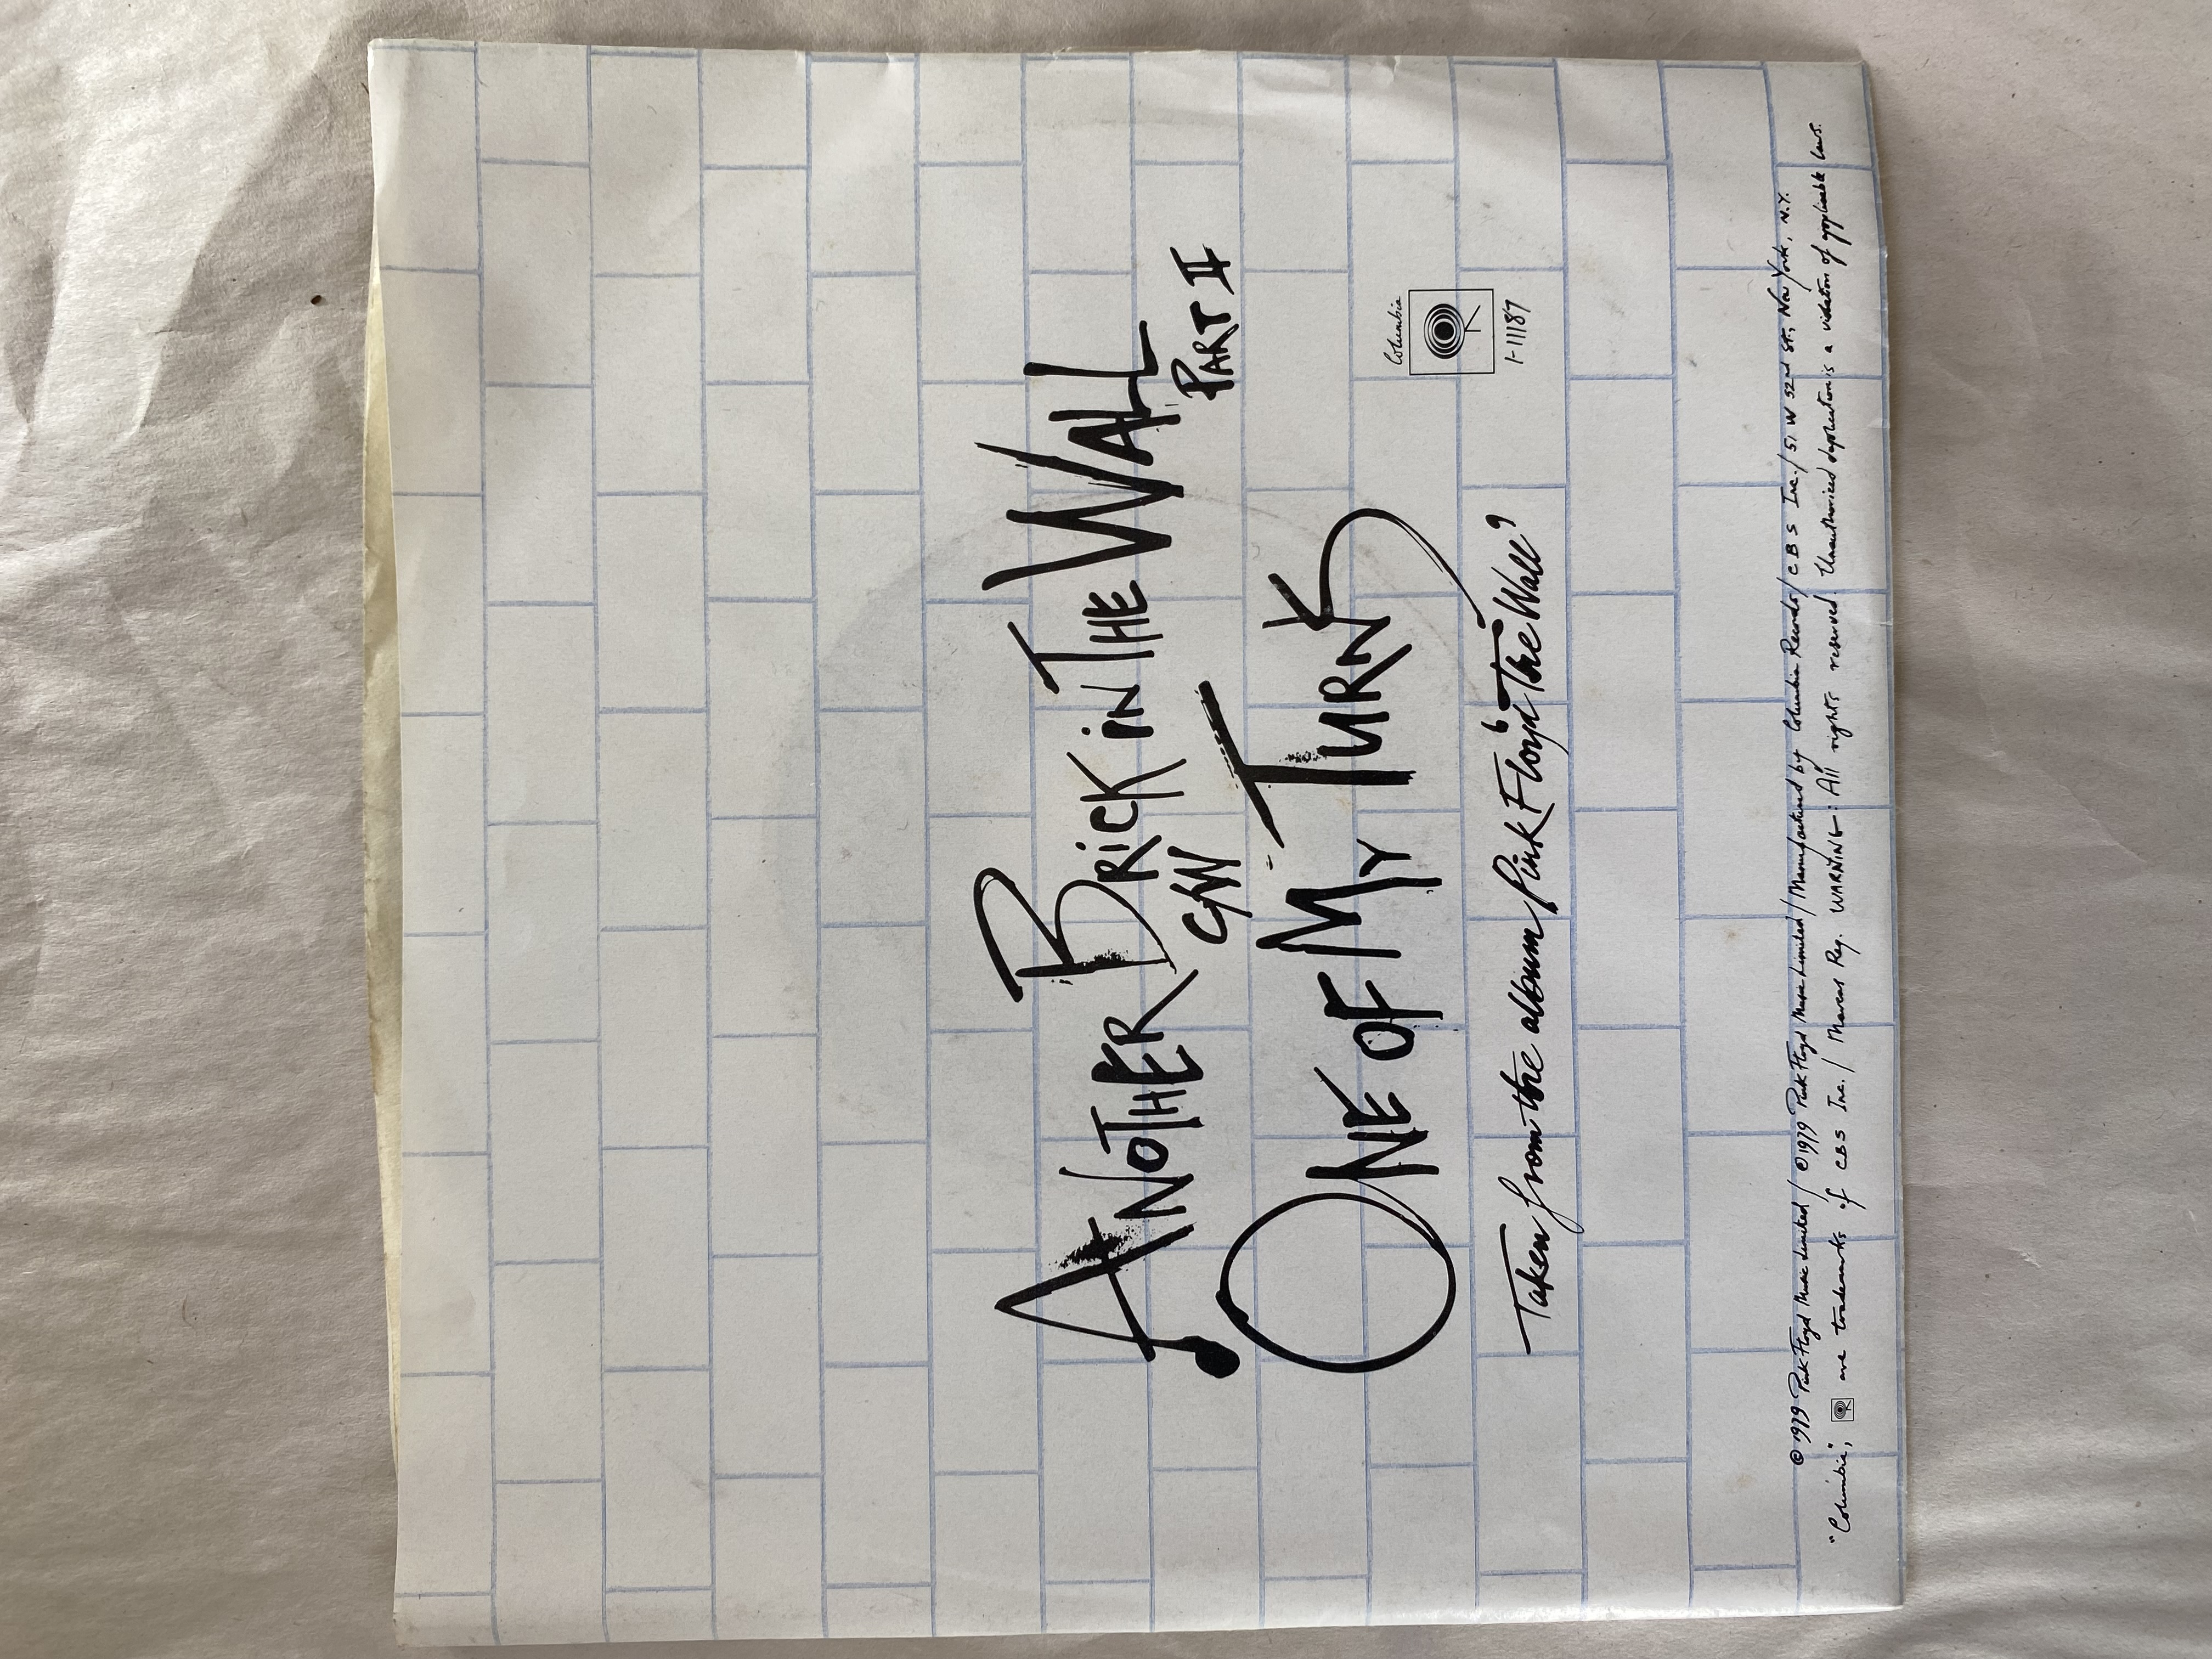 ANOTHER BRICK IN THE WALL
PART II
C/W
ONE OF MY TURNS
Taken from the album Pink Floyd 'The Wall'
Columbia
1-11187
© 1979 Pink Floyd Music Limited / ℗ 1979 Pink Floyd Music Limited / Manufactured by Columbia Records / CBS Inc. / 51 W 52nd St., New York, N.Y.
"Columbia", are trademarks of CBS Inc. / Marcas Reg. WARNING: All rights reserved. Unauthorized duplication is a violation of applicable laws.